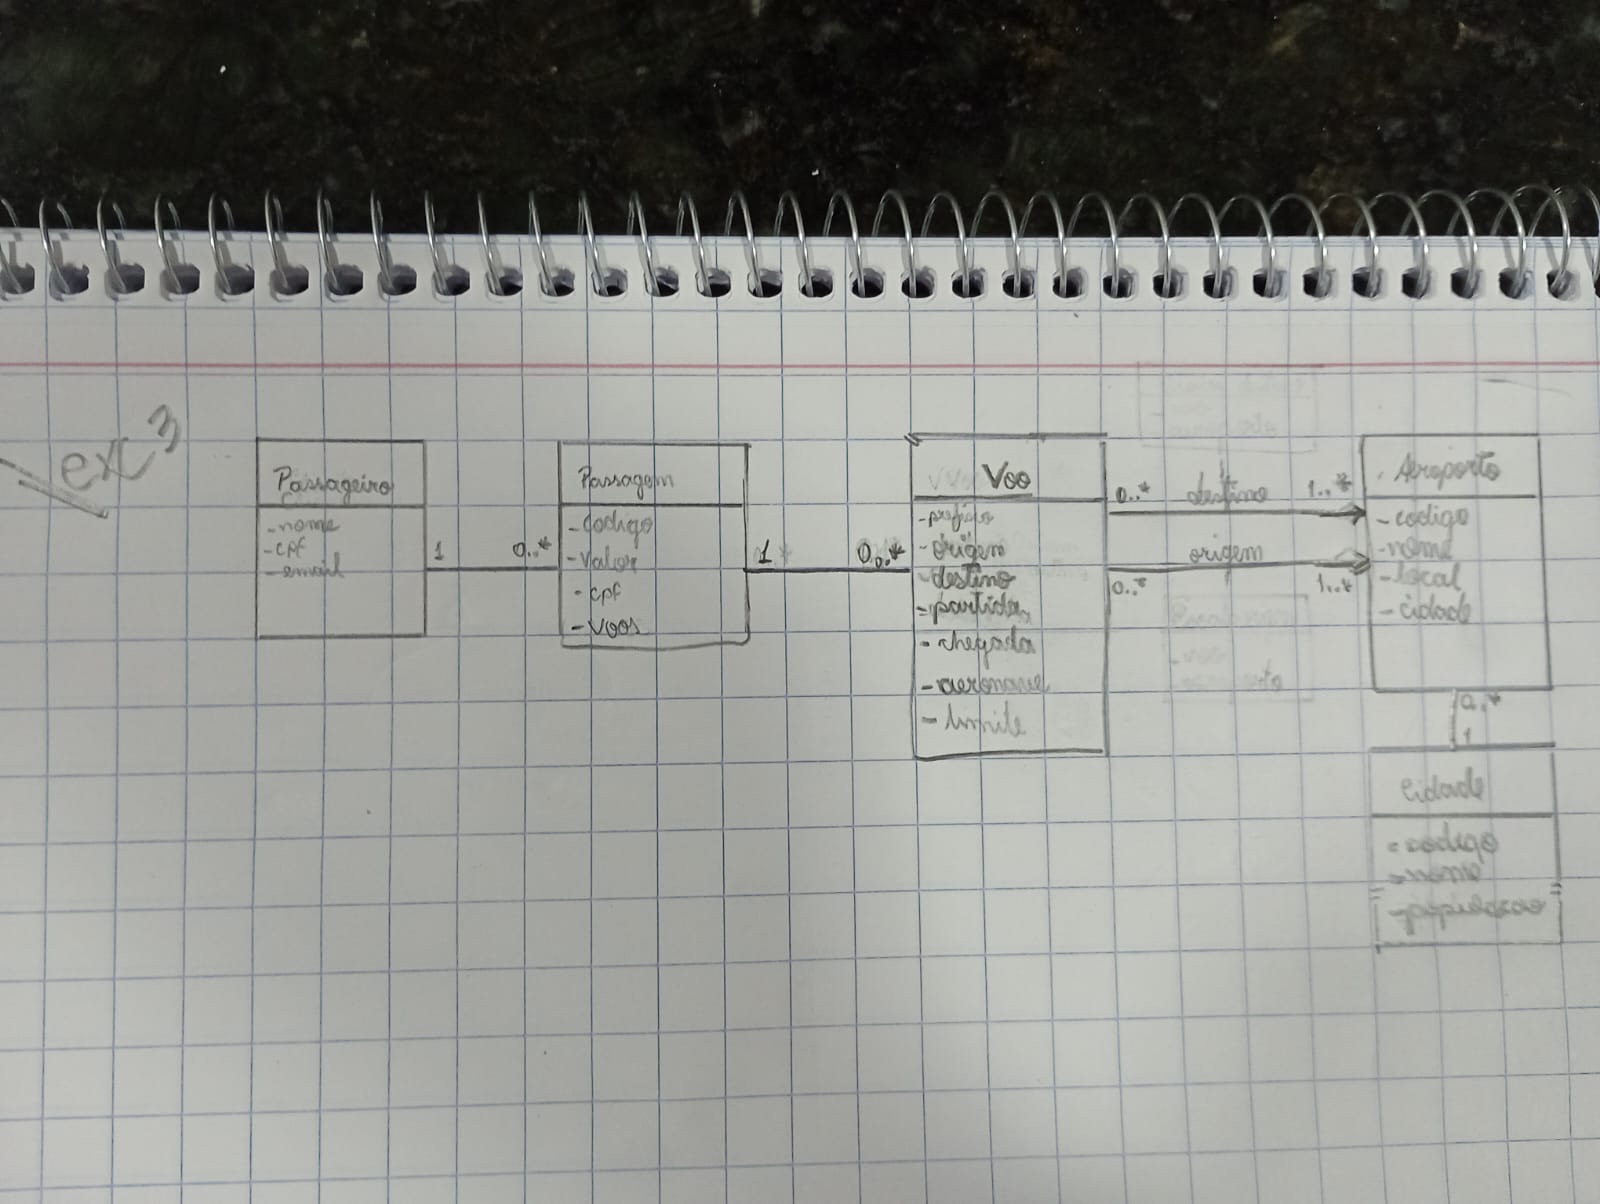 ex 3
Passageiro
- nome
- cpf
- email
1
0..*
Passagem
- codigo
- valor
- cpf
- voos
1
0..*
Voo
- prefixo
- origem
- destino
- partida
- chegada
- aeronave
- limite
0..* destino 1..*
origem
0..* 1..*
Aeroporto
- codigo
- nome
- local
- cidade
0..*
1
Cidade
- codigo
- nome
- populacao